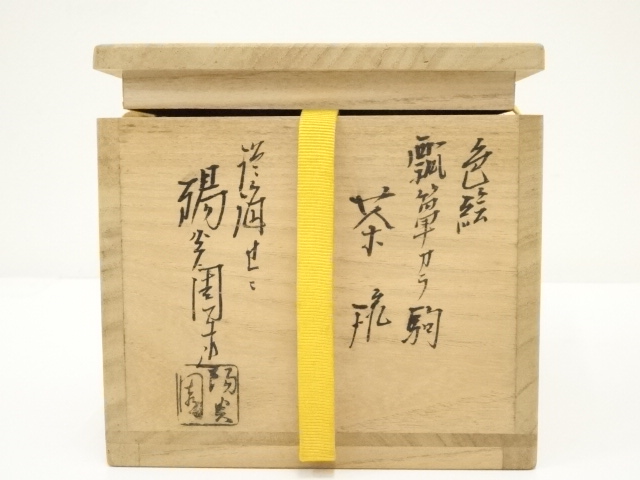 色絵
瓢箪カラ駒
茶碗
陽炎園造
陽炎園